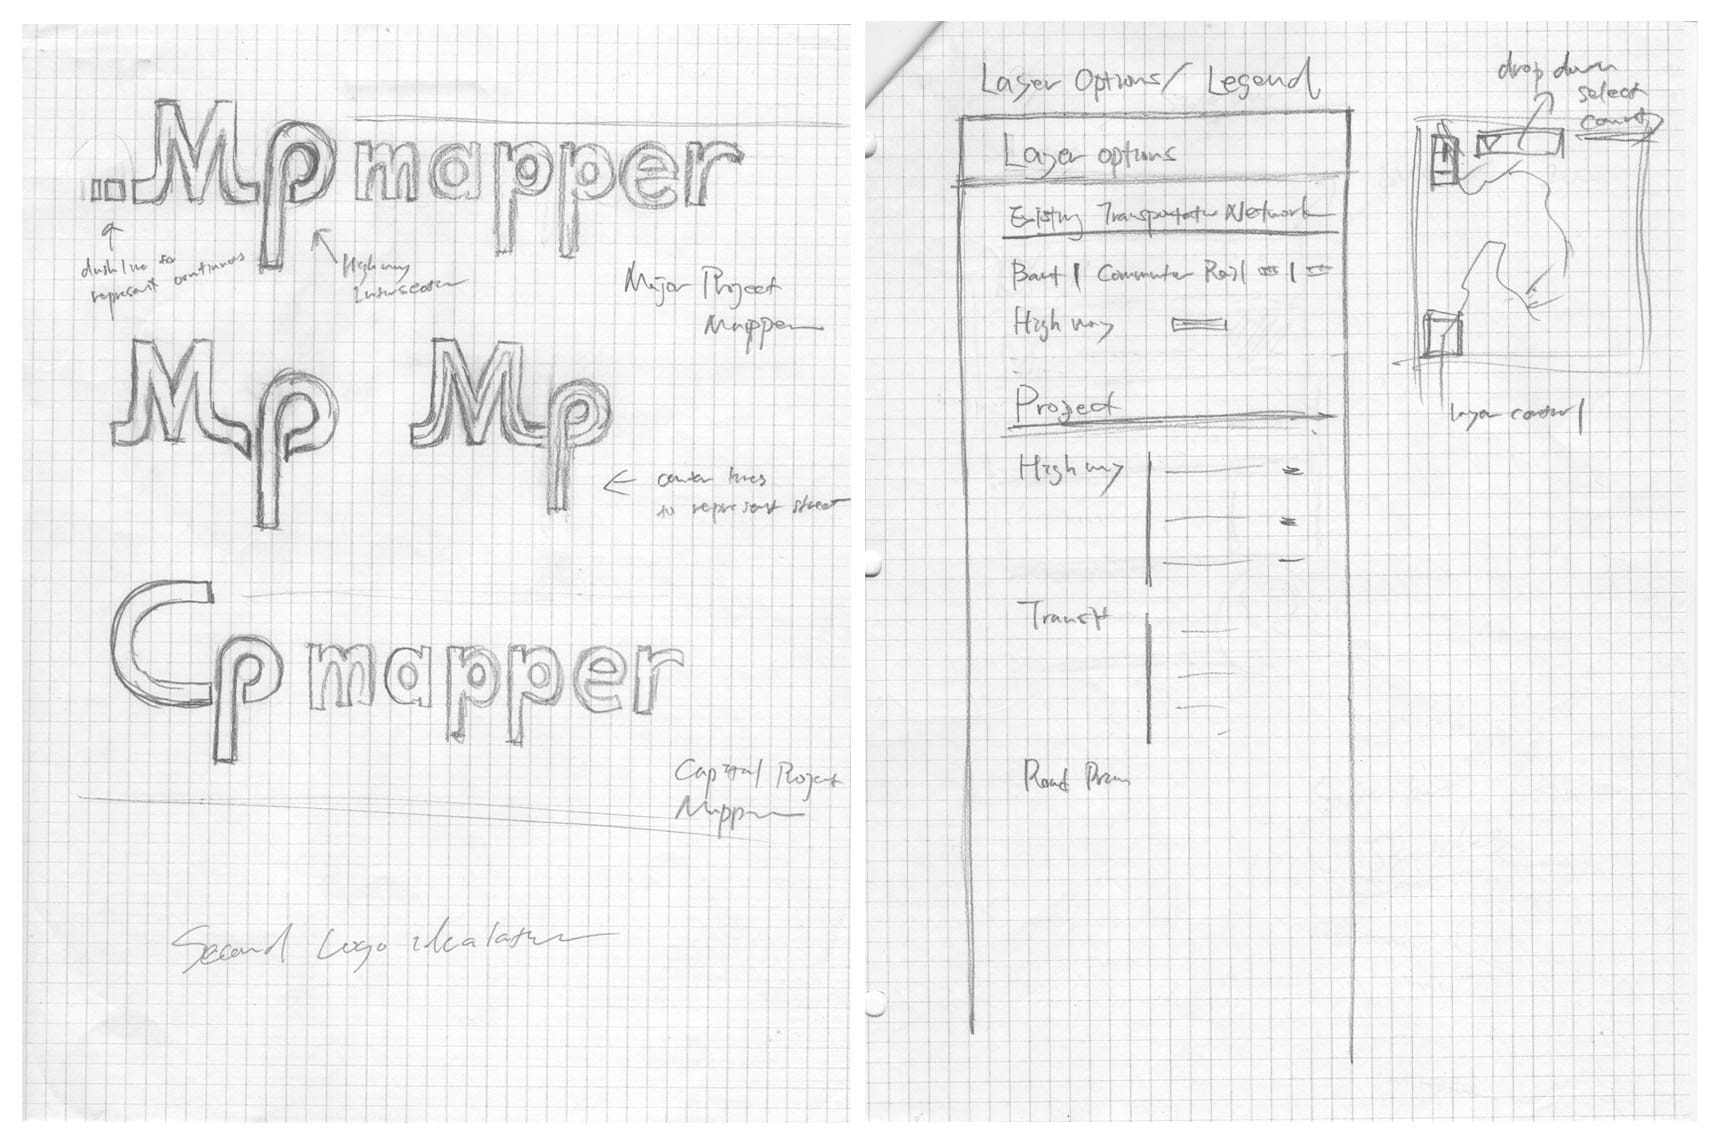 Mp mapper
dash line to
represent continues
Highway
Intersection
Major Project
Mapper
Mp Mp
center lines
to represent street
Cp mapper
Capital Project
Mapper
Second Logo idealation
Layer Options/ Legend
Layer options
Existing Transportation Network
Bart Commuter Rail
Highway
Project
Highway
Transit
Road
drop down
select
county
layer control